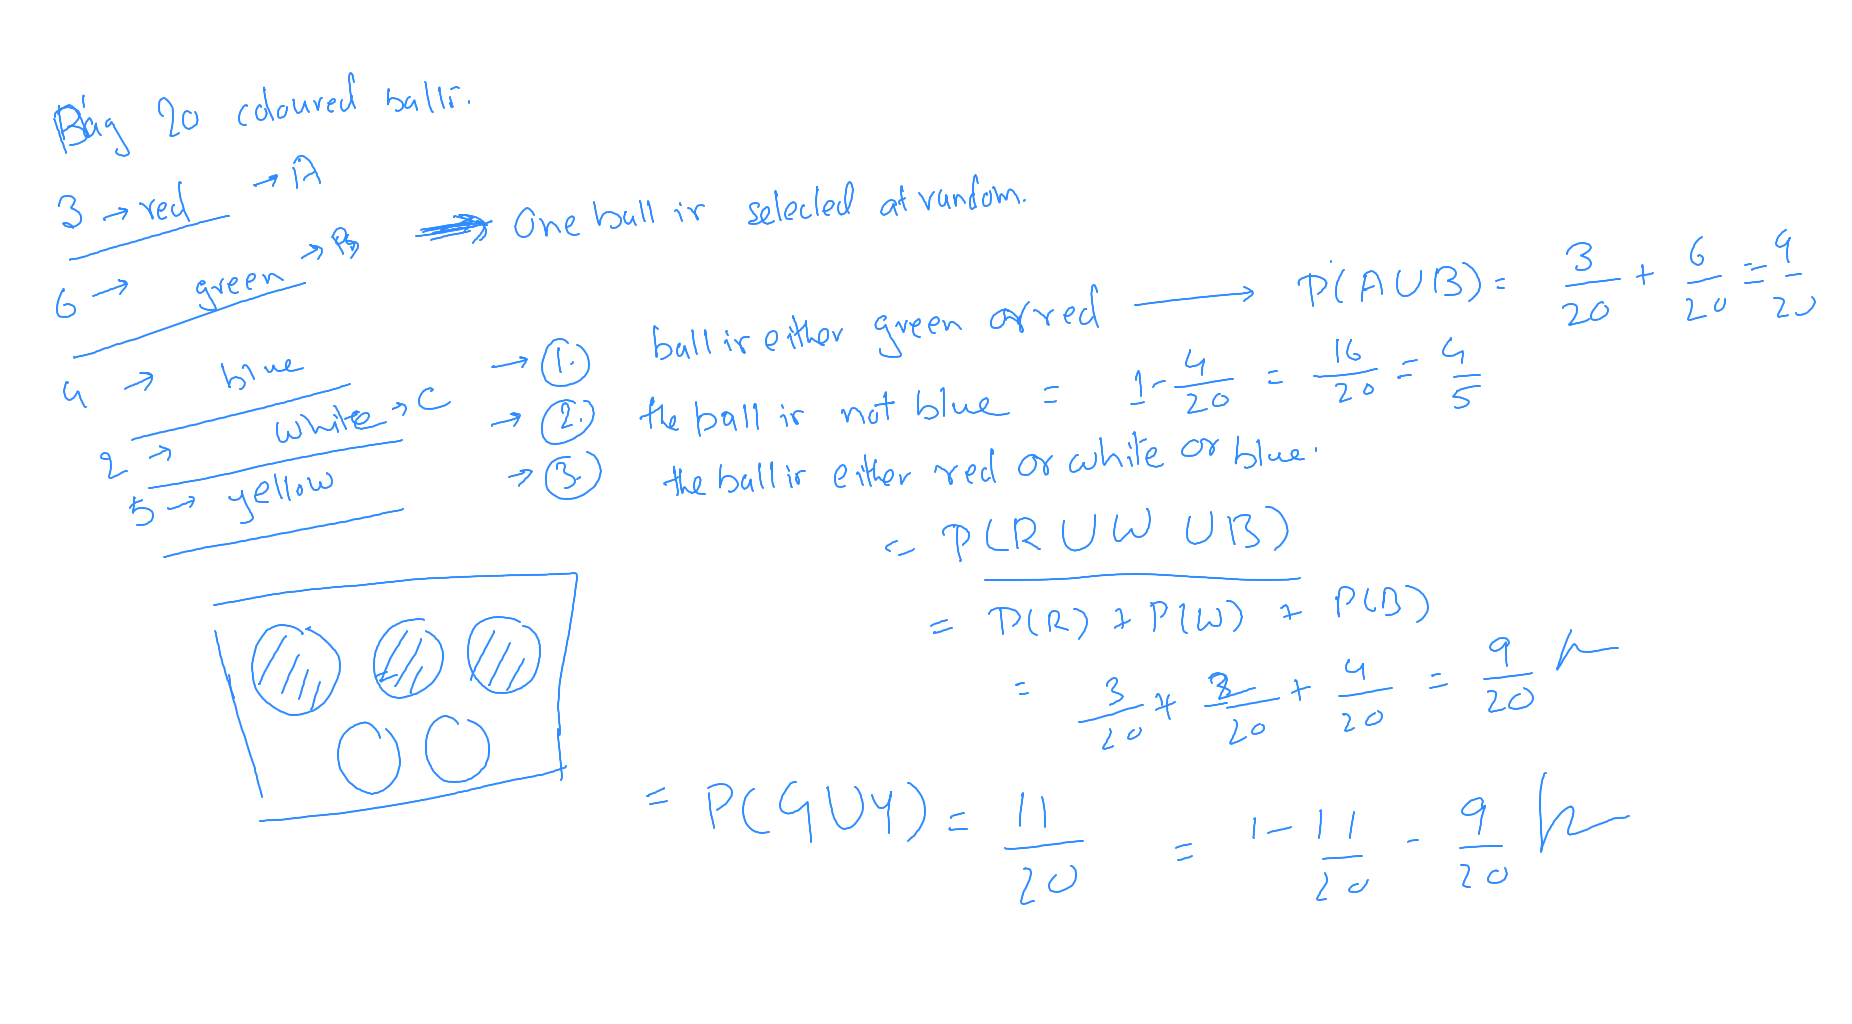 Bag 20 coloured balls.
3 → red → A
6 → green → B → One ball is selected at random.
4 → blue
2 → white → C
5 → yellow
→ 1. ball is either green or red → P(A∪B) = 3/20 + 6/20 = 9/20
→ 2. the ball is not blue = 1 - 4/20 = 16/20 = 4/5
→ 3. the ball is either red or white or blue.
= P(R ∪ W ∪ B)
= P(R) + P(W) + P(B)
= 3/20 + 2/20 + 4/20 = 9/20
= P(G∪Y) = 11/20 = 1 - 11/20 - 9/20